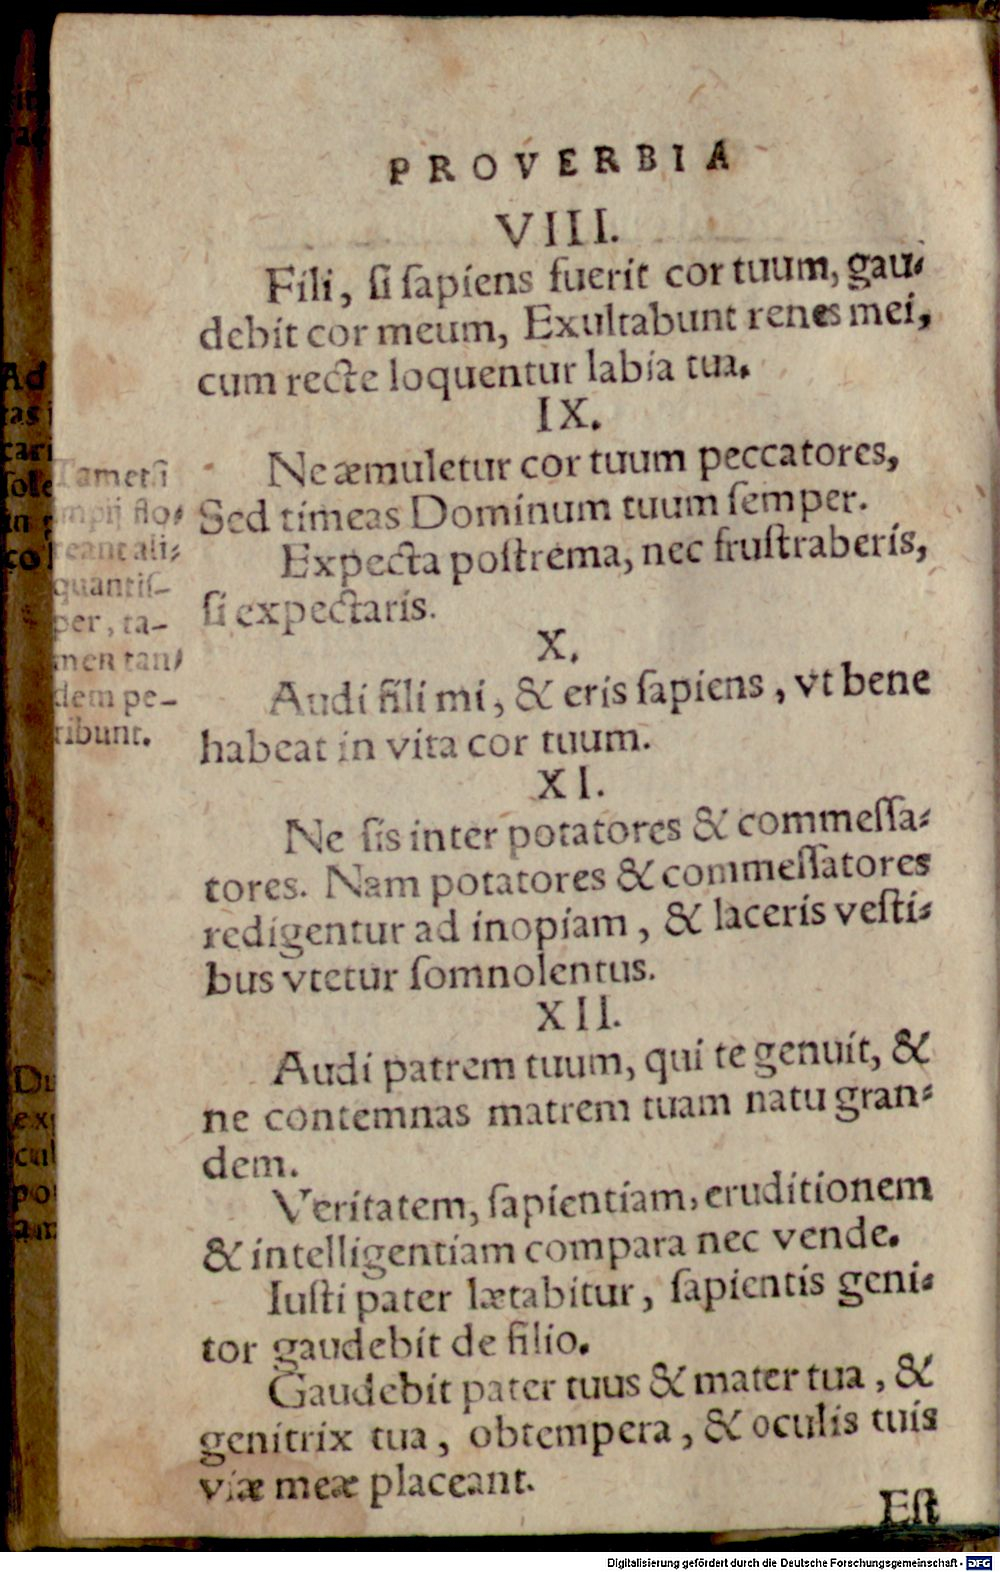 PROVERBIA
VIII.
Fili, ſi ſapiens fuerit cor tuum, gau⸗
debit cor meum, Exultabunt renes mei,
cum recte loquentur labia tua.
IX.
Ne æmuletur cor tuum peccatores,
Sed timeas Dominum tuum ſemper.
Expecta poſtrema, nec fruſtraberis,
ſi expectaris.
Tametsi
impij flo⸗
reant ali⸗
quantiſ-
per, ta-
men tan⸗
dem pe-
ribunt.
X.
Audi fili mi, & eris ſapiens, vt bene
habeat in vita cor tuum.
XI.
Ne ſis inter potatores & commeſſa⸗
tores. Nam potatores & commeſſatores
redigentur ad inopiam, & laceris veſti⸗
bus vtetur ſomnolentus.
XII.
Audi patrem tuum, qui te genuit, &
ne contemnas matrem tuam natu gran⸗
dem.
Veritatem, ſapientiam, eruditionem
& intelligentiam compara nec vende.
Iuſti pater lætabitur, ſapientis geni⸗
tor gaudebit de filio.
Gaudebit pater tuus & mater tua, &
genitrix tua, obtempera, & oculis tuis
viæ meæ placeant.
Eſt
Ad
Digitalisierung gefördert durch die Deutsche Forschungsgemeinschaft - DFG